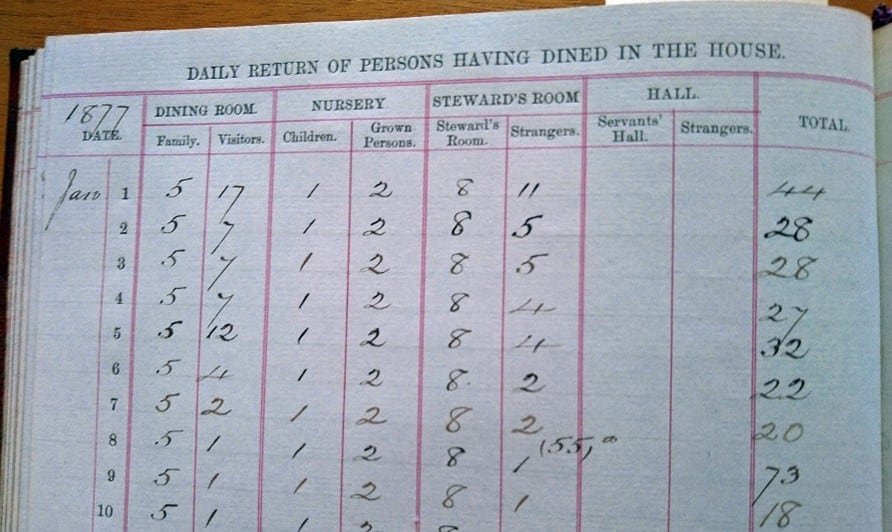 DAILY RETURN OF PERSONS HAVING DINED IN THE HOUSE.
1877 DINING ROOM. NURSERY STEWARD'S ROOM HALL.
DATE. Family. Visitors. Children. Grown Persons. Steward's Room. Strangers. Servants' Hall. Strangers. TOTAL.
Jan 1 5 17 1 2 8 11 44
2 5 7 1 2 8 5 28
3 5 7 1 2 8 5 28
4 5 7 1 2 8 4 27
5 5 12 1 2 8 4 32
6 5 4 1 2 8 2 22
7 5 2 1 2 8 2 20
8 5 1 1 2 8 1 (55, 73
9 5 1 1 2 8 1 18
10 5 1 1 2 8